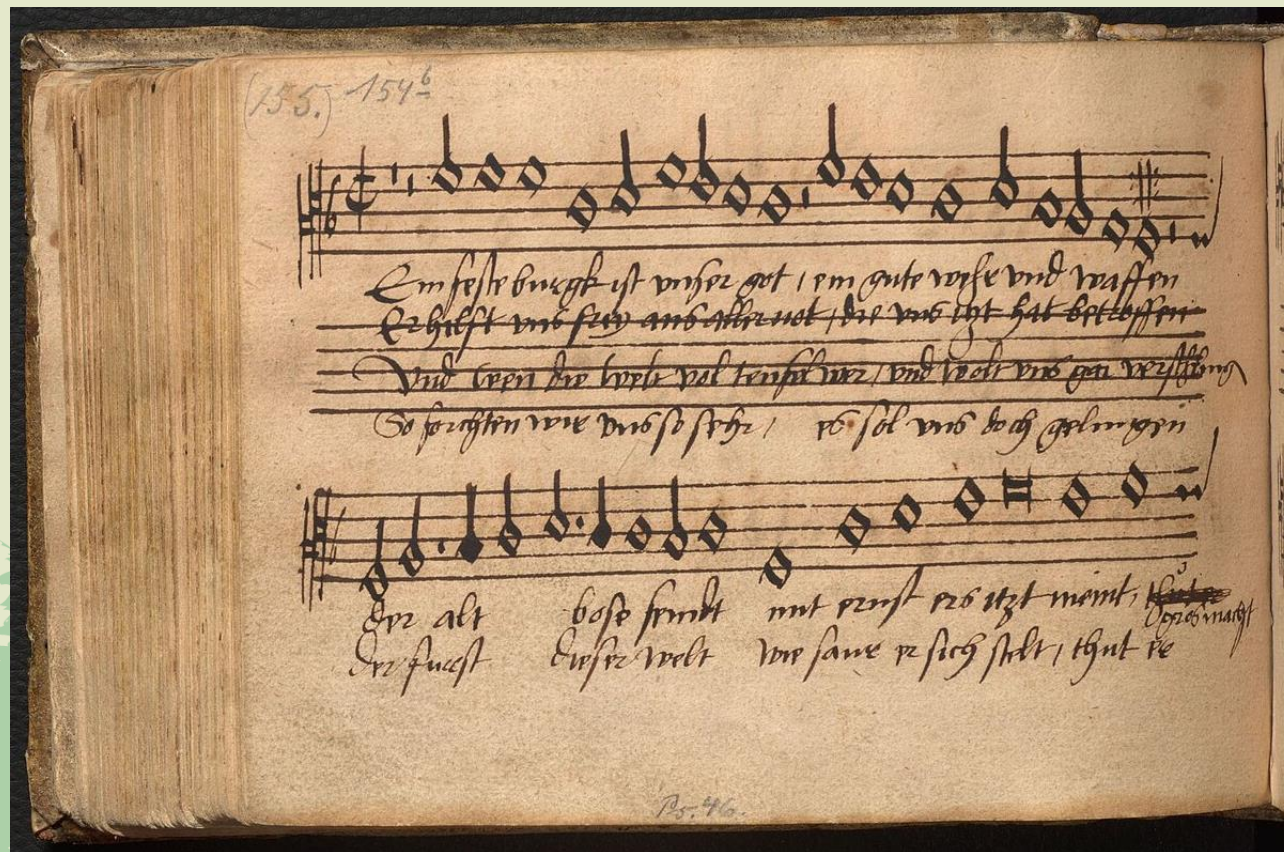 (155.) 154b
Ein feste burgk ist vnser got / ein gute wehr vnd waffen
Er hilft vns frey aus aller not / die vns itzt hat betroffen
Vnd wen die welt vol teufel wer / vnd wolt vns gar verschling
So forchten wir vns so sehr / es sol vns doch gelingen
der alt bose feindt mit ernst ers itzt meint /
gros macht
der furst dieser welt wie saur er sich stelt / thut er
Ps. 46.